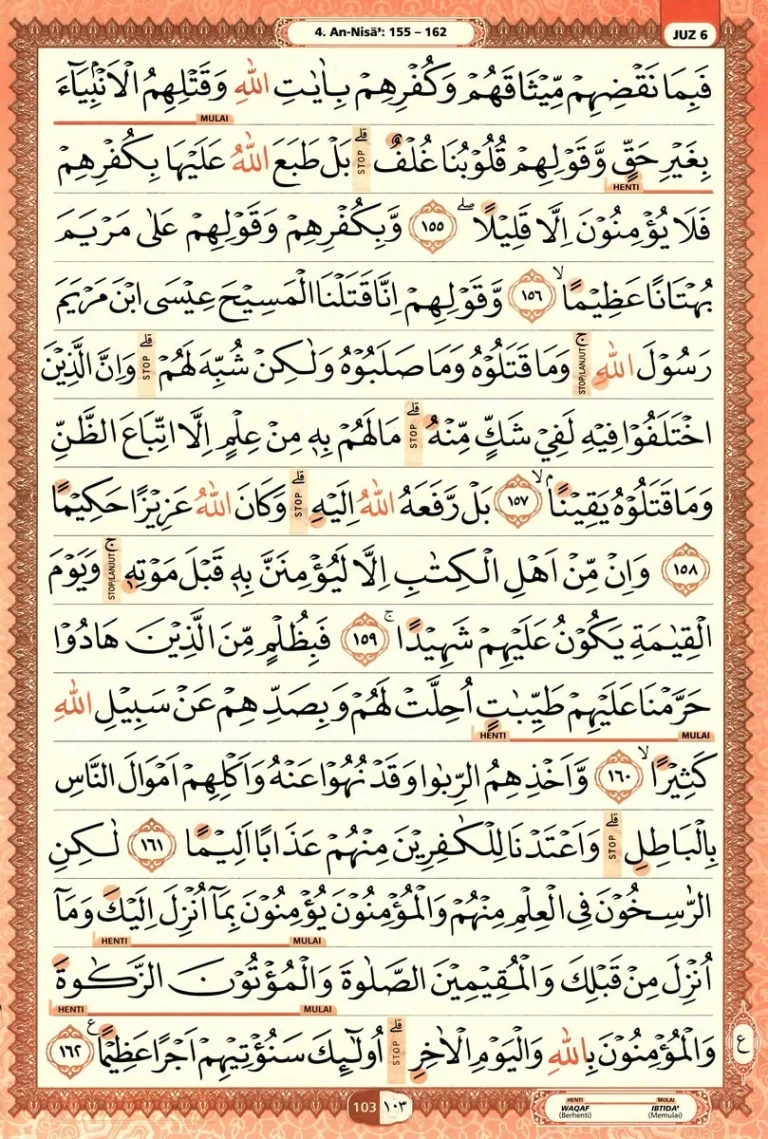 4. An-Nisā': 155 – 162
JUZ 6
فَبِمَا نَقْضِهِمْ مِّيْثَاقَهُمْ وَكُفْرِهِمْ بِاٰيٰتِ اللّٰهِ وَقَتْلِهِمُ الْاَنْۢبِيَاۤءَ
MULAI
بِغَيْرِ حَقٍّ وَّقَوْلِهِمْ قُلُوْبُنَا غُلْفٌ ۗ STOP بَلْ طَبَعَ اللّٰهُ عَلَيْهَا بِكُفْرِهِمْ
HENTI
فَلَا يُؤْمِنُوْنَ اِلَّا قَلِيْلًا ۖ ١٥٥ وَّبِكُفْرِهِمْ وَقَوْلِهِمْ عَلٰى مَرْيَمَ
بُهْتَانًا عَظِيْمًاۙ ١٥٦ وَّقَوْلِهِمْ اِنَّا قَتَلْنَا الْمَسِيْحَ عِيْسَى ابْنَ مَرْيَمَ
رَسُوْلَ اللّٰهِ ۚ STOP/LANJUT وَمَا قَتَلُوْهُ وَمَا صَلَبُوْهُ وَلٰكِنْ شُبِّهَ لَهُمْ ۗ STOP وَاِنَّ الَّذِيْنَ
اخْتَلَفُوْا فِيْهِ لَفِيْ شَكٍّ مِّنْهُ ۗ STOP مَا لَهُمْ بِهٖ مِنْ عِلْمٍ اِلَّا اتِّبَاعَ الظَّنِّ
وَمَا قَتَلُوْهُ يَقِيْنًاۢ ۙ ١٥٧ بَلْ رَّفَعَهُ اللّٰهُ اِلَيْهِ ۗ STOP وَكَانَ اللّٰهُ عَزِيْزًا حَكِيْمًا
١٥٨ وَاِنْ مِّنْ اَهْلِ الْكِتٰبِ اِلَّا لَيُؤْمِنَنَّ بِهٖ قَبْلَ مَوْتِهٖ ۚ STOP/LANJUT وَيَوْمَ
الْقِيٰمَةِ يَكُوْنُ عَلَيْهِمْ شَهِيْدًاۚ ١٥٩ فَبِظُلْمٍ مِّنَ الَّذِيْنَ هَادُوْا
حَرَّمْنَا عَلَيْهِمْ طَيِّبٰتٍ اُحِلَّتْ لَهُمْ وَبِصَدِّهِمْ عَنْ سَبِيْلِ اللّٰهِ
HENTI MULAI
كَثِيْرًاۙ ١٦٠ وَّاَخْذِهِمُ الرِّبٰوا وَقَدْ نُهُوْا عَنْهُ وَاَكْلِهِمْ اَمْوَالَ النَّاسِ
بِالْبَاطِلِ ۗ STOP وَاَعْتَدْنَا لِلْكٰفِرِيْنَ مِنْهُمْ عَذَابًا اَلِيْمًا ١٦١ لٰكِنِ
الرّٰسِخُوْنَ فِى الْعِلْمِ مِنْهُمْ وَالْمُؤْمِنُوْنَ يُؤْمِنُوْنَ بِمَآ اُنْزِلَ اِلَيْكَ وَمَآ
HENTI MULAI
اُنْزِلَ مِنْ قَبْلِكَ وَالْمُقِيْمِيْنَ الصَّلٰوةَ وَالْمُؤْتُوْنَ الزَّكٰوةَ
HENTI MULAI
وَالْمُؤْمِنُوْنَ بِاللّٰهِ وَالْيَوْمِ الْاٰخِرِ ۗ STOP اُولٰۤىِٕكَ سَنُؤْتِيْهِمْ اَجْرًا عَظِيْمًا ࣖ ١٦٢
ع
103 ١٠٣
HENTI MULAI
WAQAF IBTIDA'
(Berhenti) (Memulai)